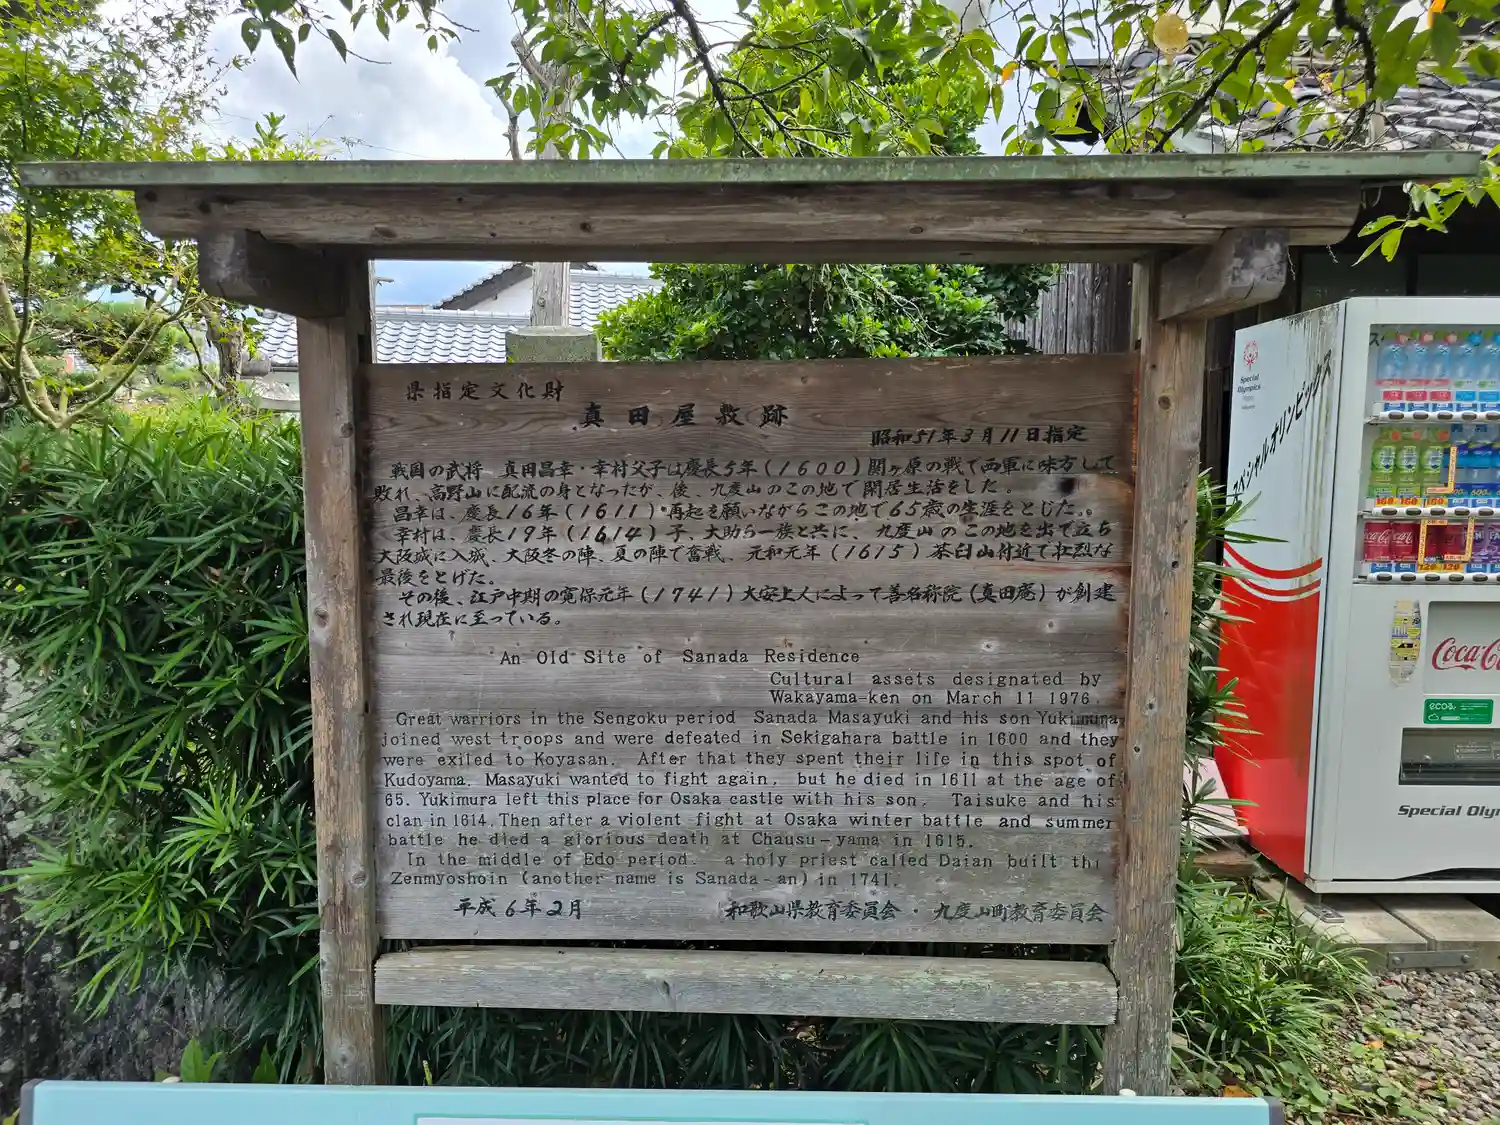 県指定文化財
真田屋敷跡
昭和51年3月11日指定
戦国の武将 真田昌幸・幸村父子は慶長5年(1600)関ヶ原の戦で西軍に味方して
敗れ、高野山に配流の身となったが、後、九度山のこの地で閑居生活をした。
昌幸は、慶長16年(1611)再起を願いながらこの地で65歳の生涯をとじた。
幸村は、慶長19年(1614)子、大助ら一族と共に、九度山のこの地を出て立ち
大阪城に入城、大阪冬の陣、夏の陣で奮戦、元和元年(1615)茶臼山付近で壮烈な
最後をとげた。
その後、江戸中期の寛保元年(1741)大安上人によって善名称院(真田庵)が創建
され現在に至っている。
An Old Site of Sanada Residence
Cultural assets designated by
Wakayama-ken on March 11 1976.
Great warriors in the Sengoku period Sanada Masayuki and his son Yukimura
joined west troops and were defeated in Sekigahara battle in 1600 and they
were exiled to Koyasan. After that they spent their life in this spot of
Kudoyama. Masayuki wanted to fight again, but he died in 1611 at the age of
65. Yukimura left this place for Osaka castle with his son, Taisuke and his
clan in 1614. Then after a violent fight at Osaka winter battle and summer
battle he died a glorious death at Chausu-yama in 1615.
In the middle of Edo period. a holy priest called Daian built th
Zenmyoshoin (another name is Sanada-an) in 1741.
平成6年2月 和歌山県教育委員会・九度山町教育委員会
Special Olympics
スペシャルオリンピックス
Coca-Co
eco
Special Oly